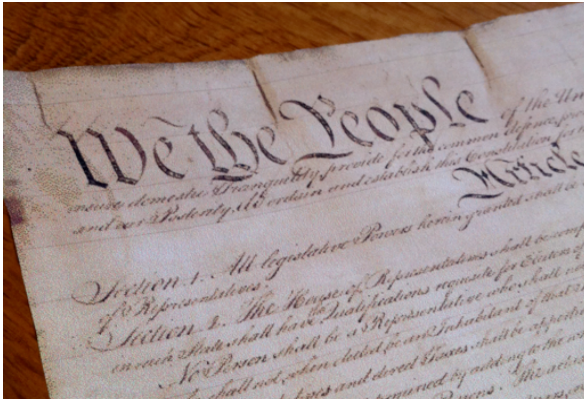 We the People of the Un
insure domestic Tranquility, provide for the common defence, pro
and our Posterity, do ordain and establish this Constitution for
Article
Section 1. All legislative Powers herein granted shall be
of Representatives.
Section 2. The House of Representatives shall be comp
in each State shall have the Qualifications requisite for Electors of
No Person shall be a Representative who shall
shall not, when elected, be an Inhabitant of that
and direct Taxes shall be apporti
by adding to the
Persons. The actu